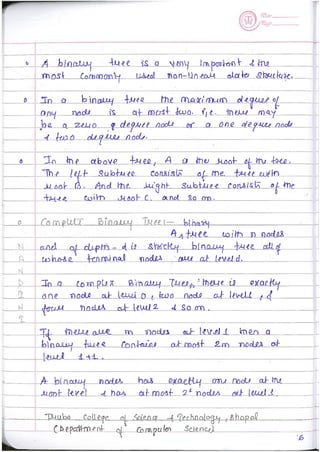 A binary tree is a very important & the
most commonly used non-linear data structure.
In a binary tree the maximum degree of
any node is at most two. i.e. there may
be a zero degree node or a one degree node
& two degree node.
In the above tree, A is the root of the tree.
The left subtree consists of the tree with
root B. And the right subtree consists of the
tree with root C. and so on.
Complete Binary Tree:- binary
A tree with n nodes
and of depth d is strictly binary tree all of
whose terminal nodes are at level d.
In a complex Binary Tree, there is exactly
one node at level 0, two node at level 1, &
four nodes at level 2 & so on.
If there are m nodes at level 1 then a
binary tree contains at most 2m nodes at
level 1+1.
A binary nodes has exactly one node at the
root level & has at most 2^d nodes at level 1.
College of Science & Technology, Bhopal
(Department of Computer Science)